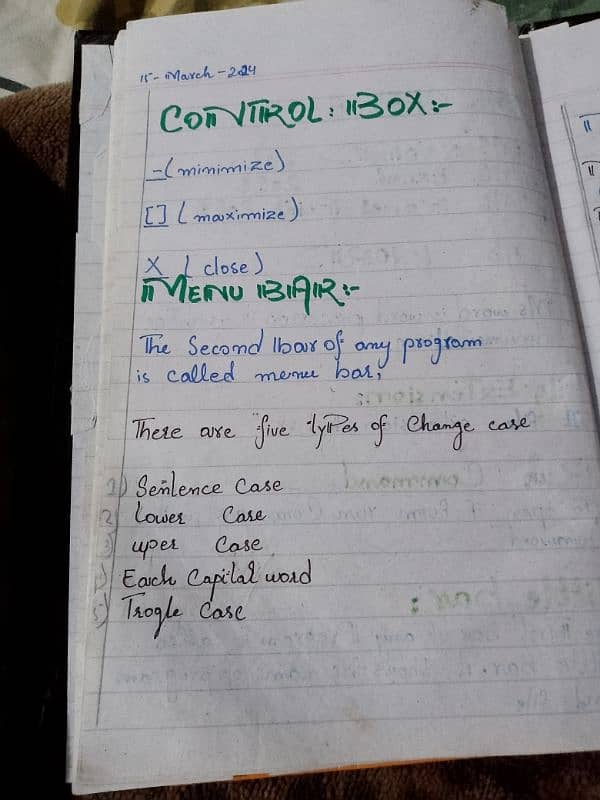 15-March-2024
CONTROL: BOX:-
-(minimize)
[] (maximize)
X (close)
MENU BAR:-
The Second bar of any program
is called menu bar,
There are five types of Change case
1) Sentence Case
2) Lower Case
3) uper Case
4) Each Capital word
5) Trogle Case